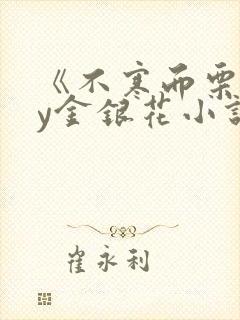 《不寒而栗
y金银花小说
崔永利